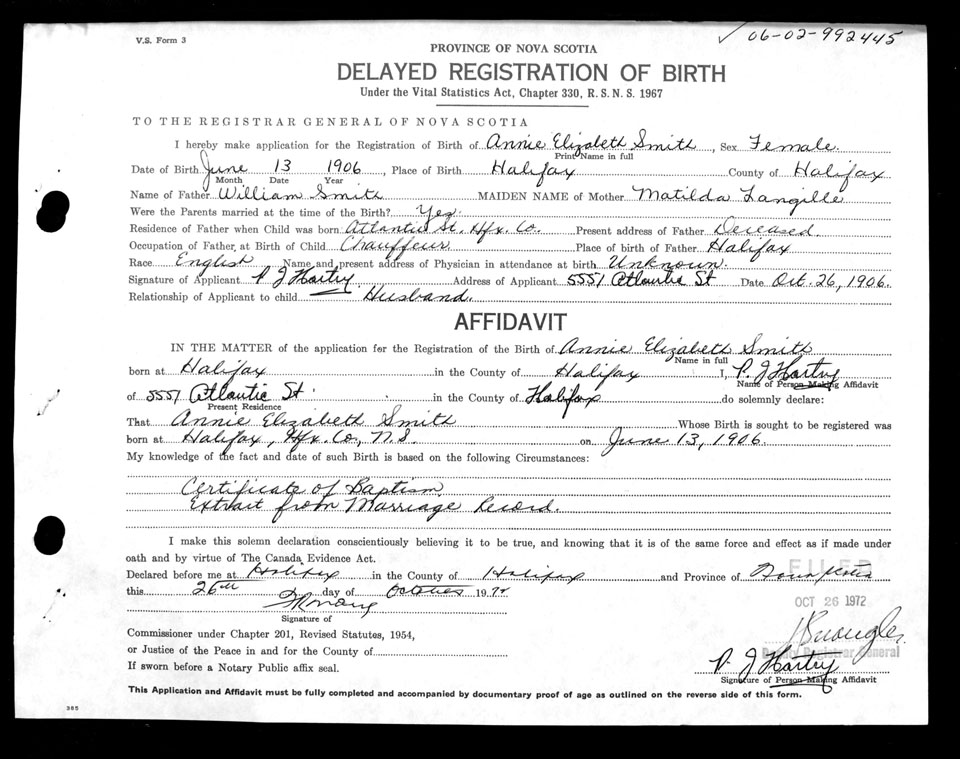 V.S. Form 3
✓ 06-02-992445
PROVINCE OF NOVA SCOTIA
DELAYED REGISTRATION OF BIRTH
Under the Vital Statistics Act, Chapter 330, R. S. N. S. 1967
TO THE REGISTRAR GENERAL OF NOVA SCOTIA
I hereby make application for the Registration of Birth of Annie Elizabeth Smith, Sex Female
Print Name in full
Date of Birth June 13 1906, Place of Birth Halifax County of Halifax
Month Date Year
Name of Father William Smith MAIDEN NAME of Mother Matilda Langille
Were the Parents married at the time of the Birth? Yes
Residence of Father when Child was born Atlantic St. Hfx. Co. Present address of Father Deceased
Occupation of Father at Birth of Child Chauffeur Place of birth of Father Halifax
Race English Name and present address of Physician in attendance at birth Unknown.
Signature of Applicant P J Hartry Address of Applicant 5551 Atlantic St Date Oct. 26, 1906.
Relationship of Applicant to child Husband.
AFFIDAVIT
IN THE MATTER of the application for the Registration of the Birth of Annie Elizabeth Smith
Name in full
born at Halifax in the County of Halifax I, P. J Hartry
Name of Person Making Affidavit
of 5551 Atlantic St. in the County of Halifax do solemnly declare:
Present Residence
That Annie Elizabeth Smith Whose Birth is sought to be registered was
born at Halifax, Hfx. Co, N.S. on June 13, 1906
My knowledge of the fact and date of such Birth is based on the following Circumstances:
Certificate of Baptism
Extrait from Marriage Record.
I make this solemn declaration conscientiously believing it to be true, and knowing that it is of the same force and effect as if made under
oath and by virtue of The Canada Evidence Act.
Declared before me at Halifax in the County of Halifax and Province of Nova Scotia
FILED
this 26th day of October 1972
OCT 26 1972
Signature of
Commissioner under Chapter 201, Revised Statutes, 1954,
or Justice of the Peace in and for the County of
Deputy Registrar General
If sworn before a Notary Public affix seal.
P. J Hartry
Signature of Person Making Affidavit
This Application and Affidavit must be fully completed and accompanied by documentary proof of age as outlined on the reverse side of this form.
385